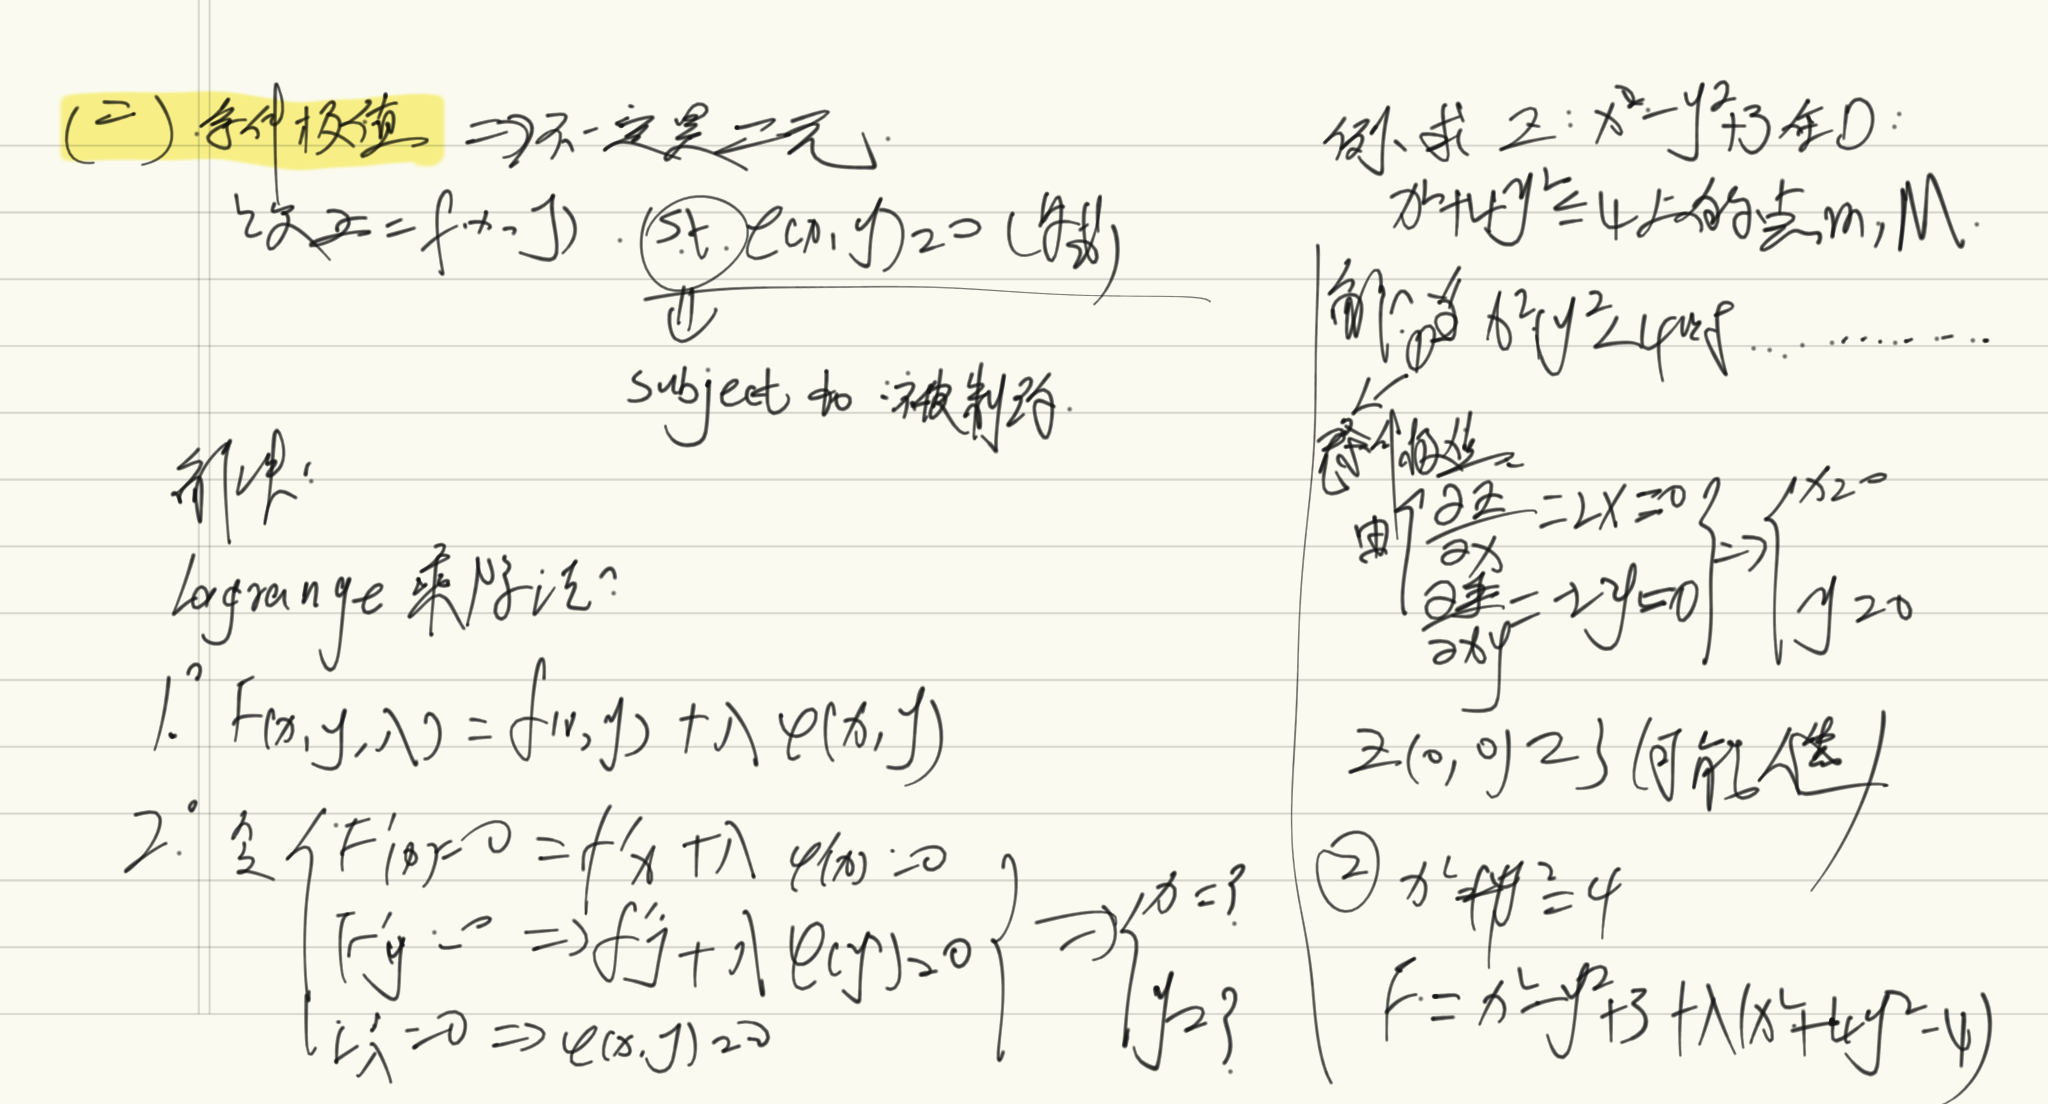 (二) 条件极值 ⇒ 不一定是二元.
设 z = f(x, y) . (s.t.) φ(x, y) = 0 (
⇓
subject to : 被制约.
解决:
Lagrange 乘子法:
1.° F(x, y, λ) = f(x, y) + λ φ(x, y)
2.° 令 { F'(x) = 0 = f'x + λ φ'(x) = 0
F'y = 0 ⇒ f'y + λ φ(y) = 0 } ⇒ { x = ?
y = ?
F'λ = 0 ⇒ φ(x, y) = 0
例、求 z : x² - y² + 3 在 D :
x² + 4y² ≤ 4 上的 m, M.
解: ① 当 x² y² < 4 时 ............
条件极值
由 { ∂z/∂x = 2x = 0
∂z/∂y = -2y = 0 } ⇒ { x = 0
y = 0
z(0, 0) = 3 (可能
② x² + 4y² = 4
F = x² - y² + 3 + λ(x² + 4y² - 4)